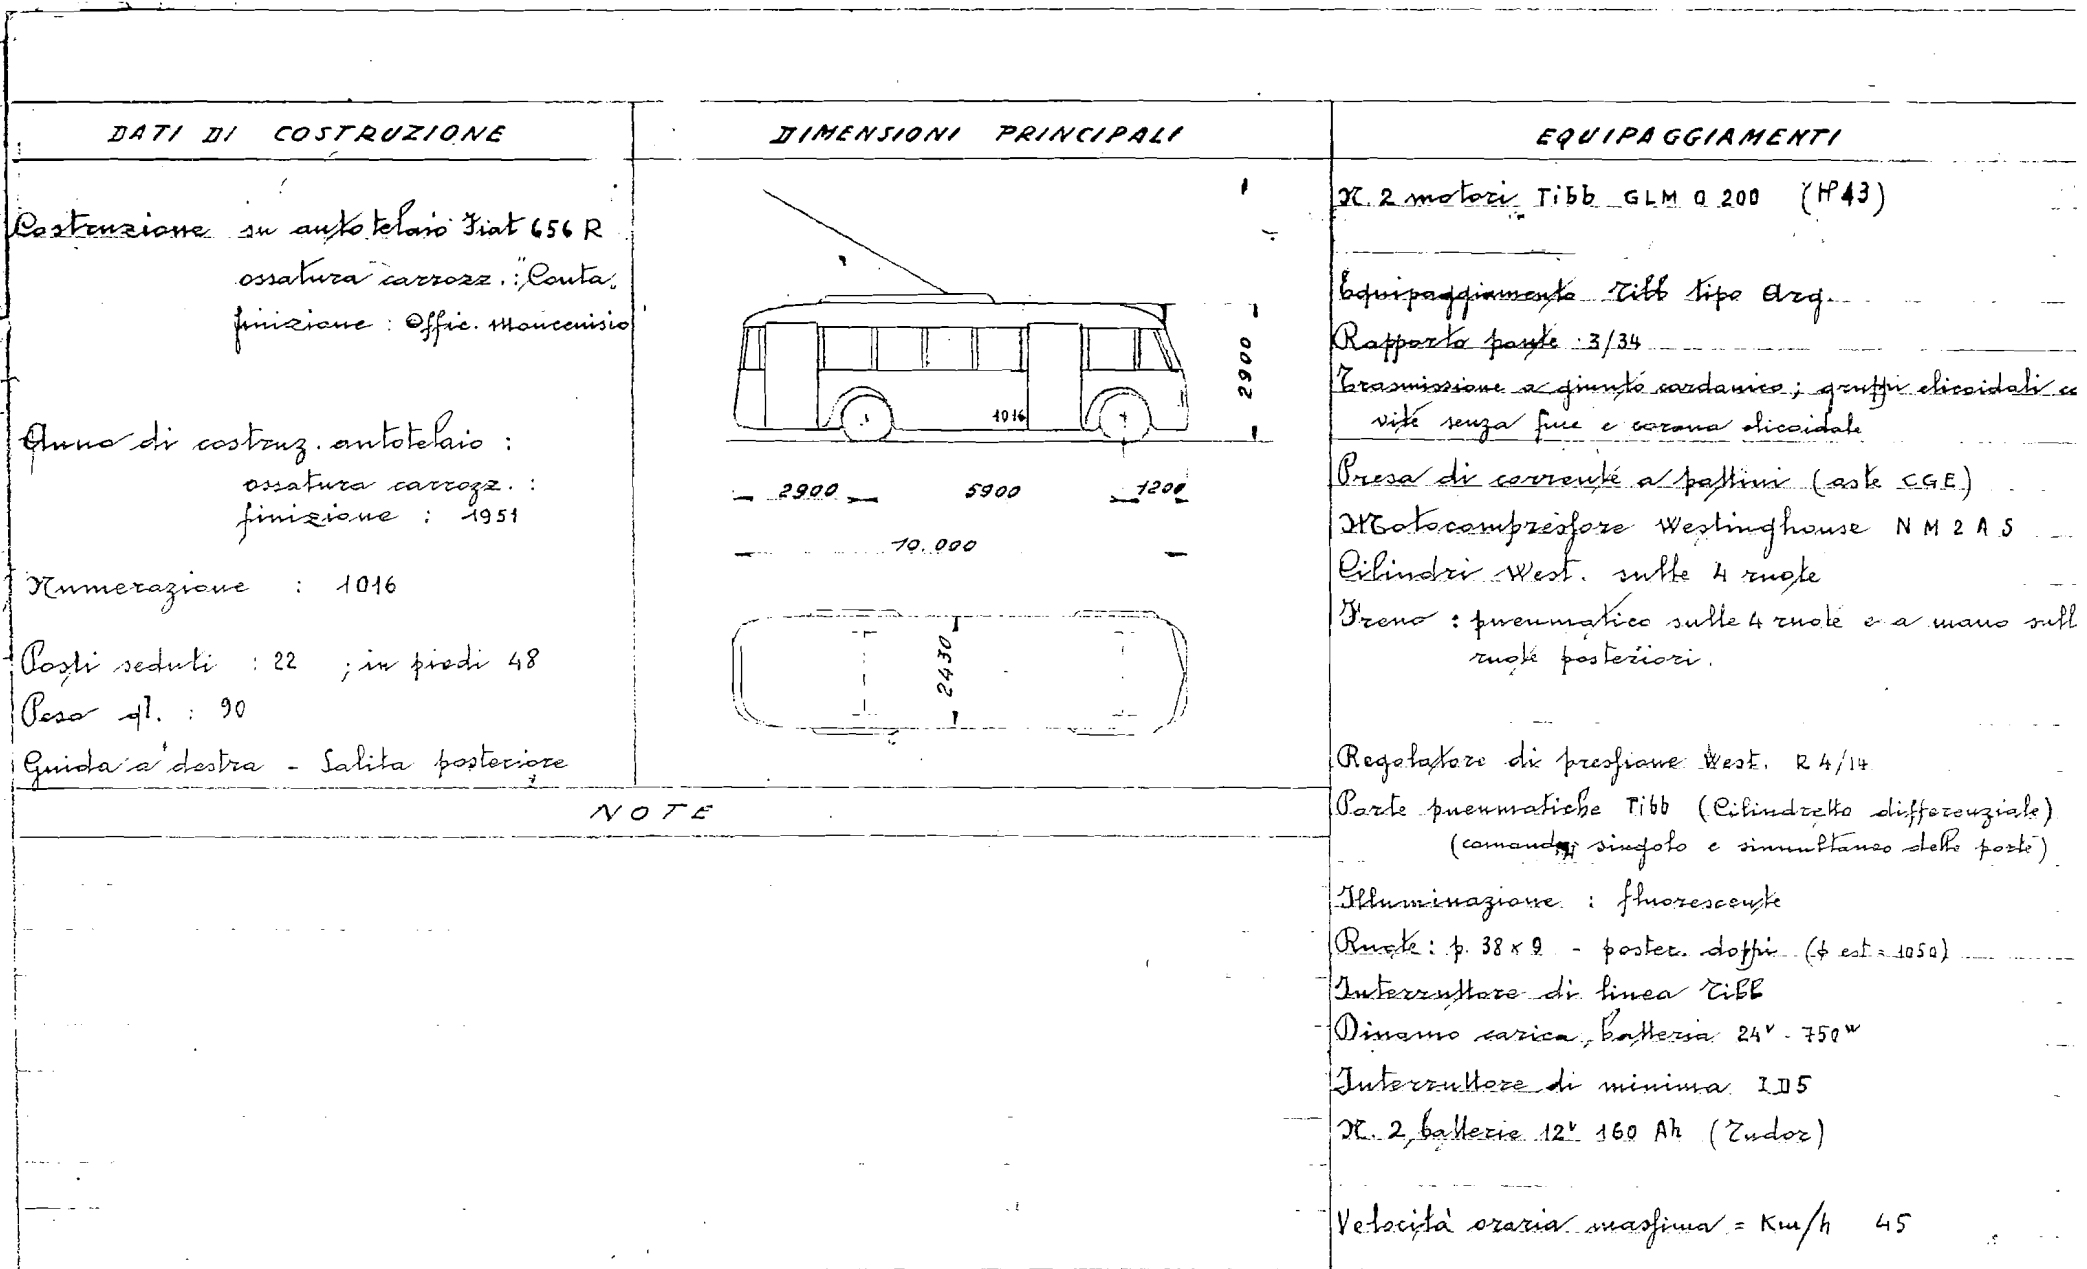 DATI DI COSTRUZIONE
Costruzione su autotelaio Fiat 656 R
ossatura carrozz.: Conta.
finizione : Offic. Moncenisio
Anno di costruz. autotelaio :
ossatura carrozz. :
finizione : 1951
Numerazione : 1016
Posti seduti : 22 ; in piedi 48
Peso ql. : 90
Guida a destra - Salita posteriore
DIMENSIONI PRINCIPALI
1016
2900
2900 5900 1200
10.000
2430
NOTE
EQUIPAGGIAMENTI
N. 2 motori Tibb GLM 0 200 (HP 43)
Equipaggiamento Tibb tipo Arg.
Rapporto ponte : 3/34
Trasmissione a giunto cardanico; gruppi elicoidali co
vite senza fine e corona elicoidale
Presa di corrente a pattini (aste CGE)
Motocompressore Westinghouse NM2AS
Cilindri West. sulle 4 ruote
Freno : pneumatico sulle 4 ruote e a mano sull
ruote posteriori.
Regolatore di pressione West. R 4/14
Porte pneumatiche Tibb (Cilindretto differenziale)
singolo e simultaneo delle porte)
Illuminazione : fluorescente
Ruote : p. 38 x 9 - poster. doppi (φ est = 1050)
Interruttore di linea Tibb
Dinamo carica batteria 24v - 750w
Interruttore di minima ID5
N. 2 batterie 12v 160 Ah (Tudor)
Velocità oraria massima = Km/h 45